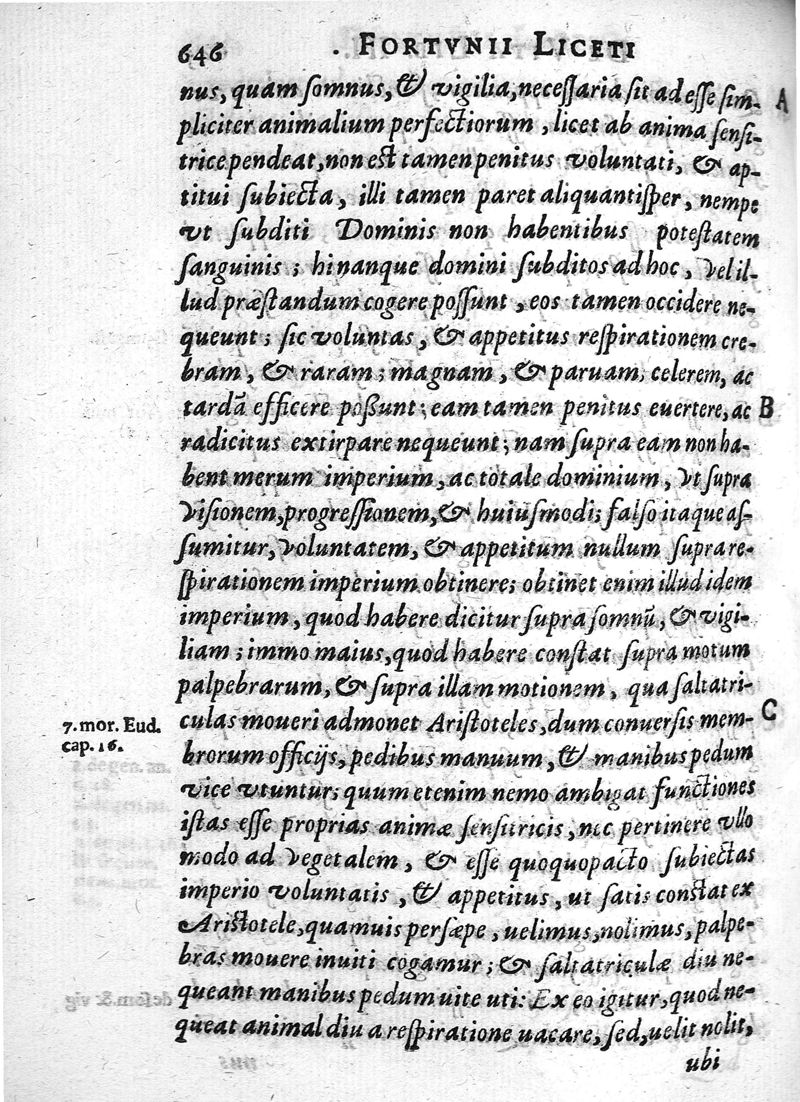 646 . FORTVNII LICETI
nus, quam somnus, & vigilia, necessaria sit ad esse sim- A
pliciter animalium perfectiorum, licet ab anima sensi-
trice pendeat, non est tamen penitus voluntati, & ap-
titui subiecta, illi tamen paret aliquantisper, nempe
vt subditi Dominis non habentibus potestatem
sanguinis; hi nanque domini subditos ad hoc, vel il-
lud præstandum cogere possunt, eos tamen occidere ne-
queunt; sic voluntas, & appetitus respirationem cre-
bram, & raram; magnam, & paruam, celerem, ac
tardā efficere possunt; eam tamen penitus euertere, ac B
radicitus extirpare nequeunt; nam supra eam non ha-
bent merum imperium, ac totale dominium, vt supra
visionem, progressionem, & huiusmodi; falso itaque as-
sumitur, voluntatem, & appetitum nullum supra re-
spirationem imperium obtinere; obtinet enim illud idem
imperium, quod habere dicitur supra somnū, & vigi-
liam; immo maius, quod habere constat supra motum
palpebrarum, & supra illam motionem, qua saltatri-
7. mor. Eud. culas moueri admonet Aristoteles, dum conuersis mem- C
cap. 16. brorum officijs, pedibus manuum, & manibus pedum
vice vtuntur; quum etenim nemo ambigat functiones
istas esse proprias animæ sensitricis, nec pertinere vllo
modo ad vegetalem, & esse quoquopacto subiectas
imperio voluntatis, & appetitus, ut satis constat ex
Aristotele, quamuis persæpe, uelimus, nolimus, palpe-
bras mouere inuiti cogamur; & saltatriculæ diu ne-
queant manibus pedum uite uti: Ex eo igitur, quod ne-
queat animal diu a respiratione uacare, sed, uelit nolit,
ubi